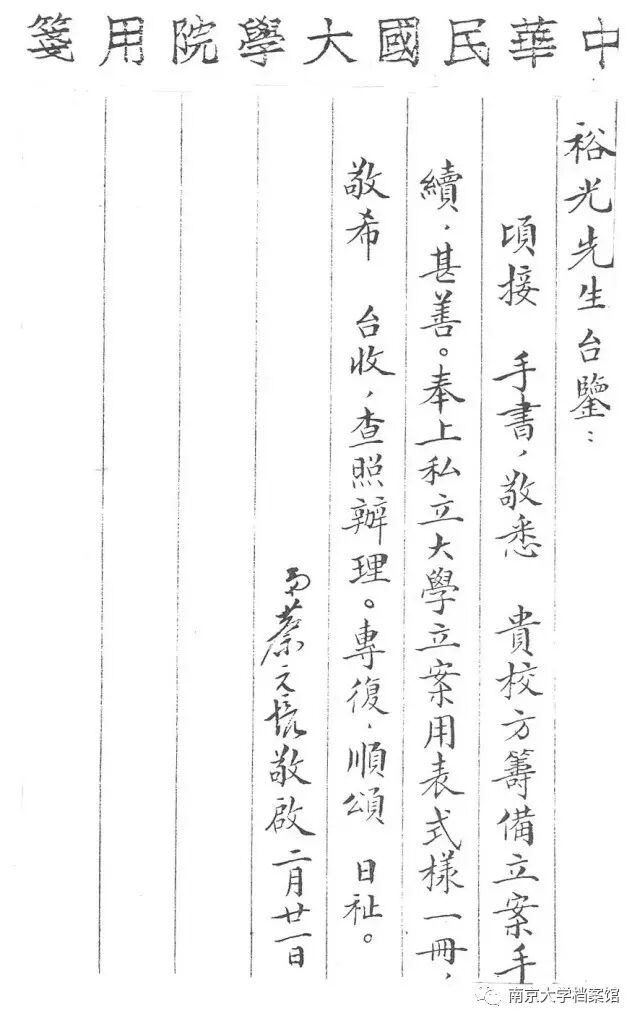 中華民國大學院用箋
裕光先生台鑒：
頃接　手書，敬悉　貴校方籌備立案手
續，甚善。奉上私立大學立案用表式樣一冊，
敬希　台收，查照辦理。專復，順頌　日祉。
蔡元培敬啟　二月廿一日
南京大学档案馆